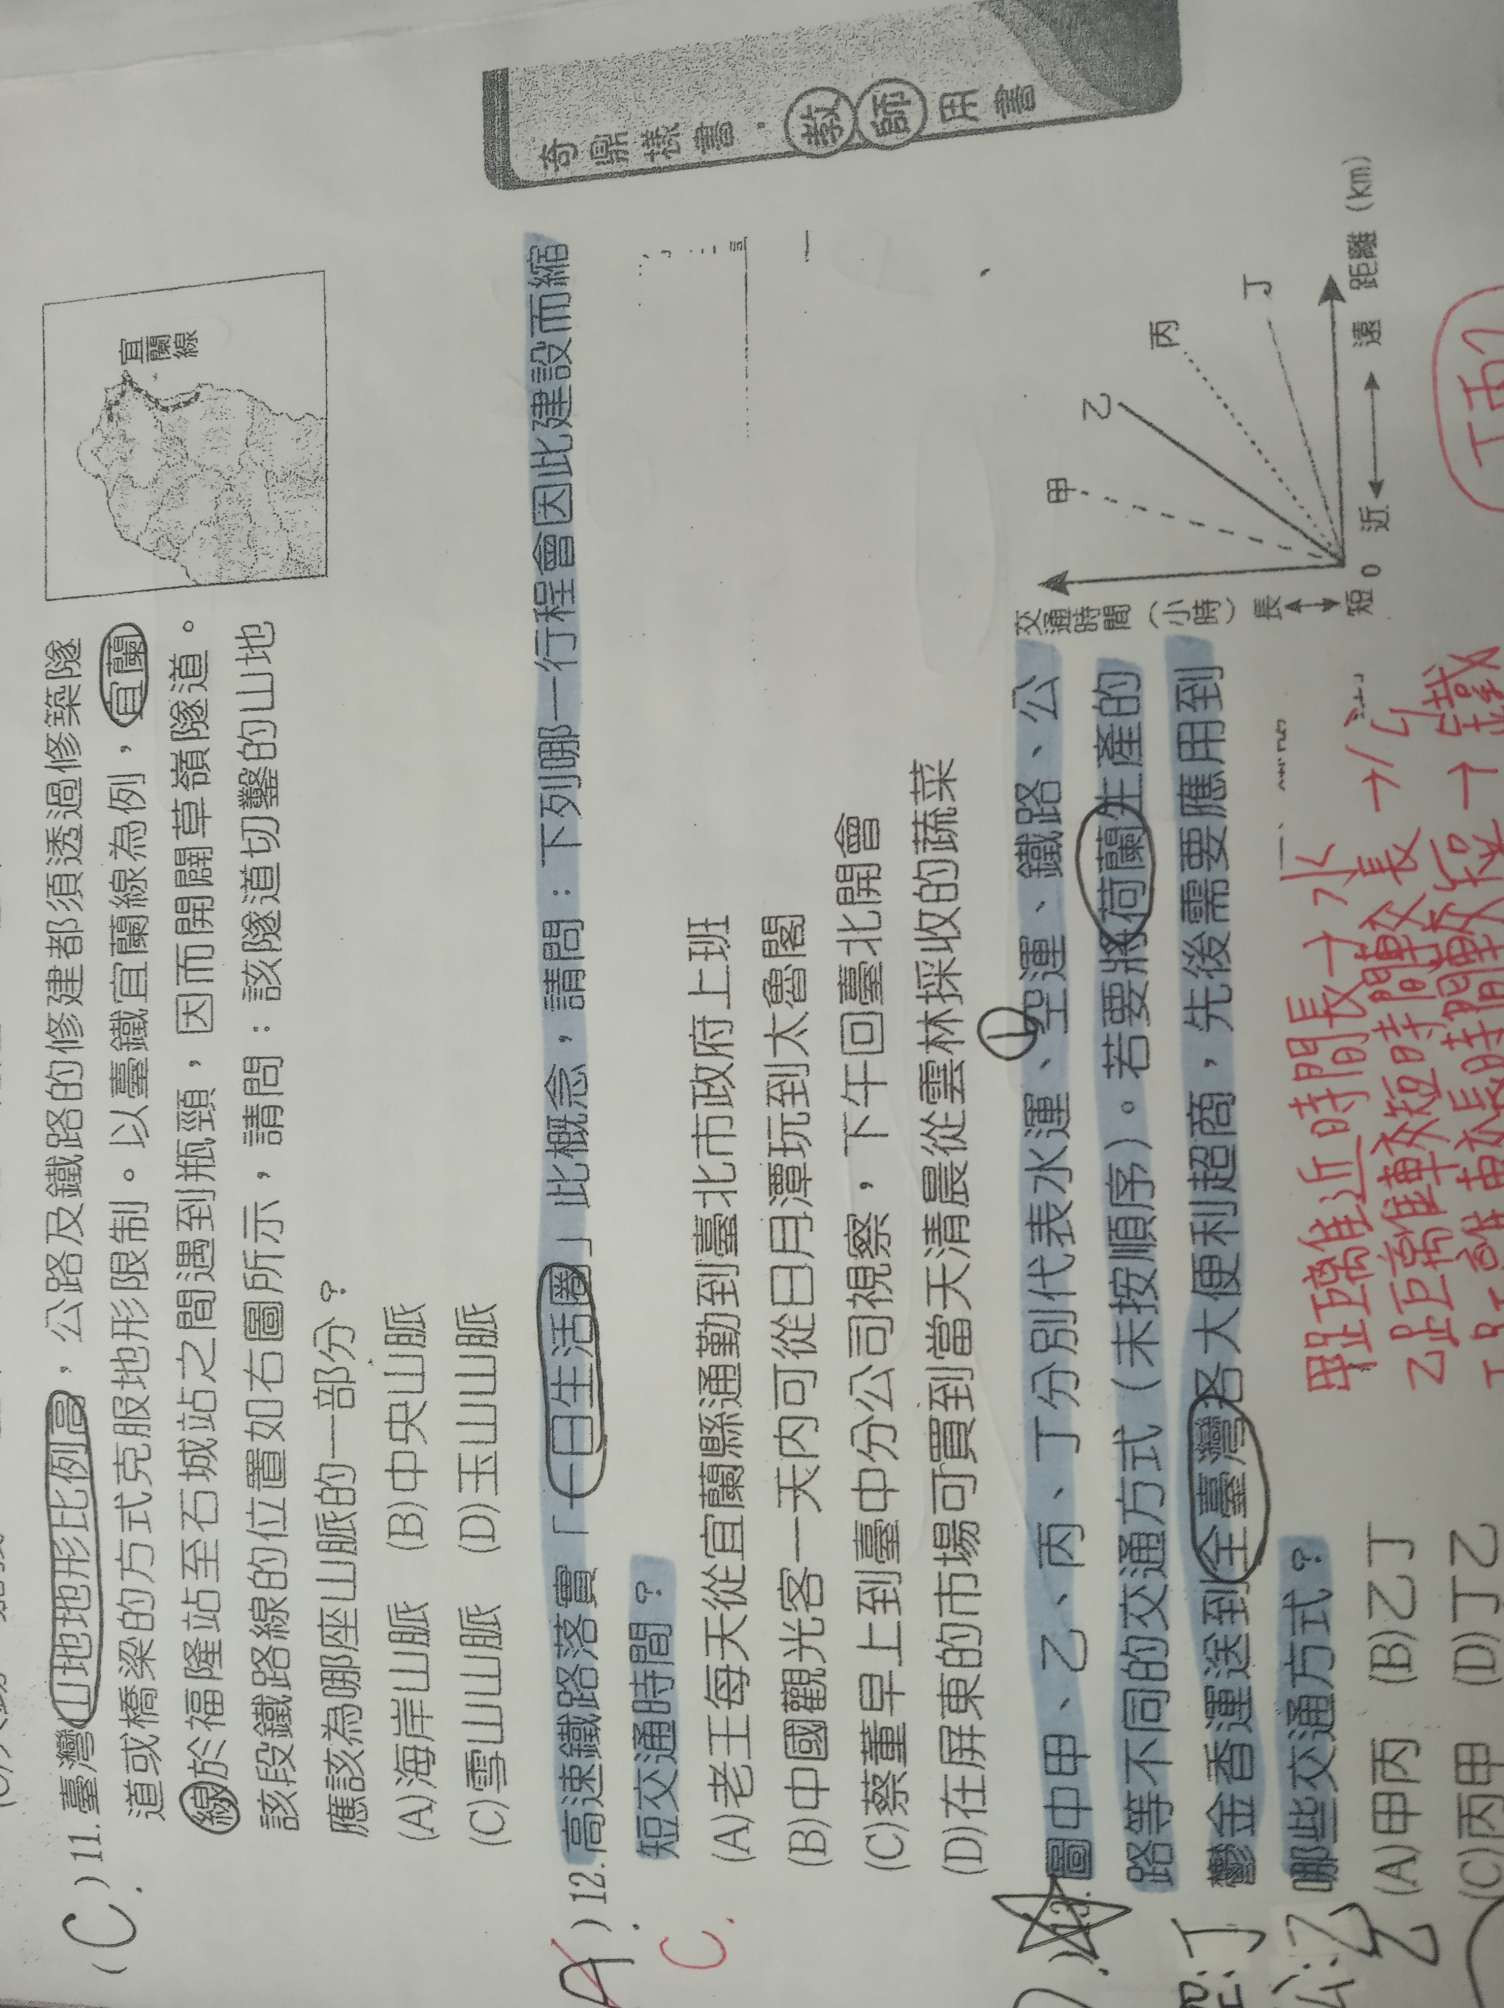 奇鼎樣書．教師用書
(C)11.臺灣山地地形比例高，公路及鐵路的修建都須透過修築隧
道或橋梁的方式克服地形限制。以臺鐵宜蘭線為例，宜蘭
線於福隆站至石城站之間遇到瓶頸，因而開闢草嶺隧道。
該段鐵路線的位置如右圖所示，請問：該隧道切鑿的山地
應該為哪座山脈的一部分？
(A)海岸山脈 (B)中央山脈
(C)雪山山脈 (D)玉山山脈
宜蘭線
(A)12.高速鐵路落實「一日生活圈」此概念，請問：下列哪一行程會因此建設而縮
短交通時間？
C.
(A)老王每天從宜蘭縣通勤到臺北市政府上班
(B)中國觀光客一天內可從日月潭玩到太魯閣
(C)蔡董早上到臺中分公司視察，下午回臺北開會
(D)在屏東的市場可買到當天清晨從雲林採收的蔬菜
13.圖中甲、乙、丙、丁分別代表水運、空運、鐵路、公
路等不同的交通方式（未按順序）。若要將荷蘭生產的
鬱金香運送到全臺灣各大便利超商，先後需要應用到
哪些交通方式？
(A)甲丙 (B)乙丁
(C)丙甲 (D)丁乙
交通時間（小時）
長
短
0
近
遠
距離（km）
甲
乙
丙
丁
甲距離近時間長→水
乙距離較短時間較長→公
空:丁
公:乙